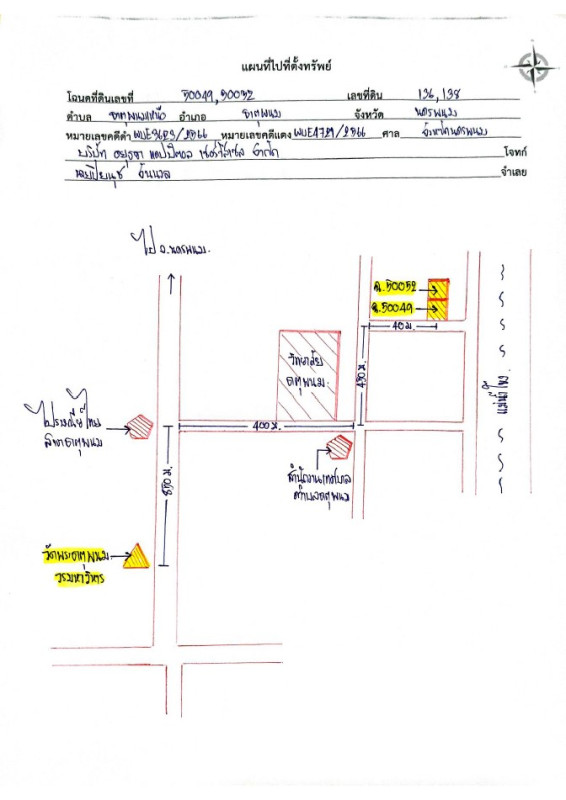 แผนที่ไปที่ตั้งทรัพย์
โฉนดที่ดินเลขที่ 50049,50052 เลขที่ดิน 136,138
ตำบล ธาตุพนมเหนือ อำเภอ ธาตุพนม จังหวัด นครพนม
หมายเลขคดีดำ ผบE3623/2566 หมายเลขคดีแดง ผบE4729/2566 ศาล จังหวัดนครพนม
บริษัท อยุธยา แคปปิตอล เซอร์วิสเซส จำกัด โจทก์
จำเลย
ไป จ.นครพนม
ฉ.50052
ฉ.50049
40 ม.
วิทยาลัย
ธาตุพนม
450 ม.
แม่น้ำโขง
ไปรษณีย์ไทย
สาขาธาตุพนม
400 ม.
สำนักงานเทศบาล
ตำบลธาตุพนม
850 ม.
วัดพระธาตุพนม
วรมหาวิหาร